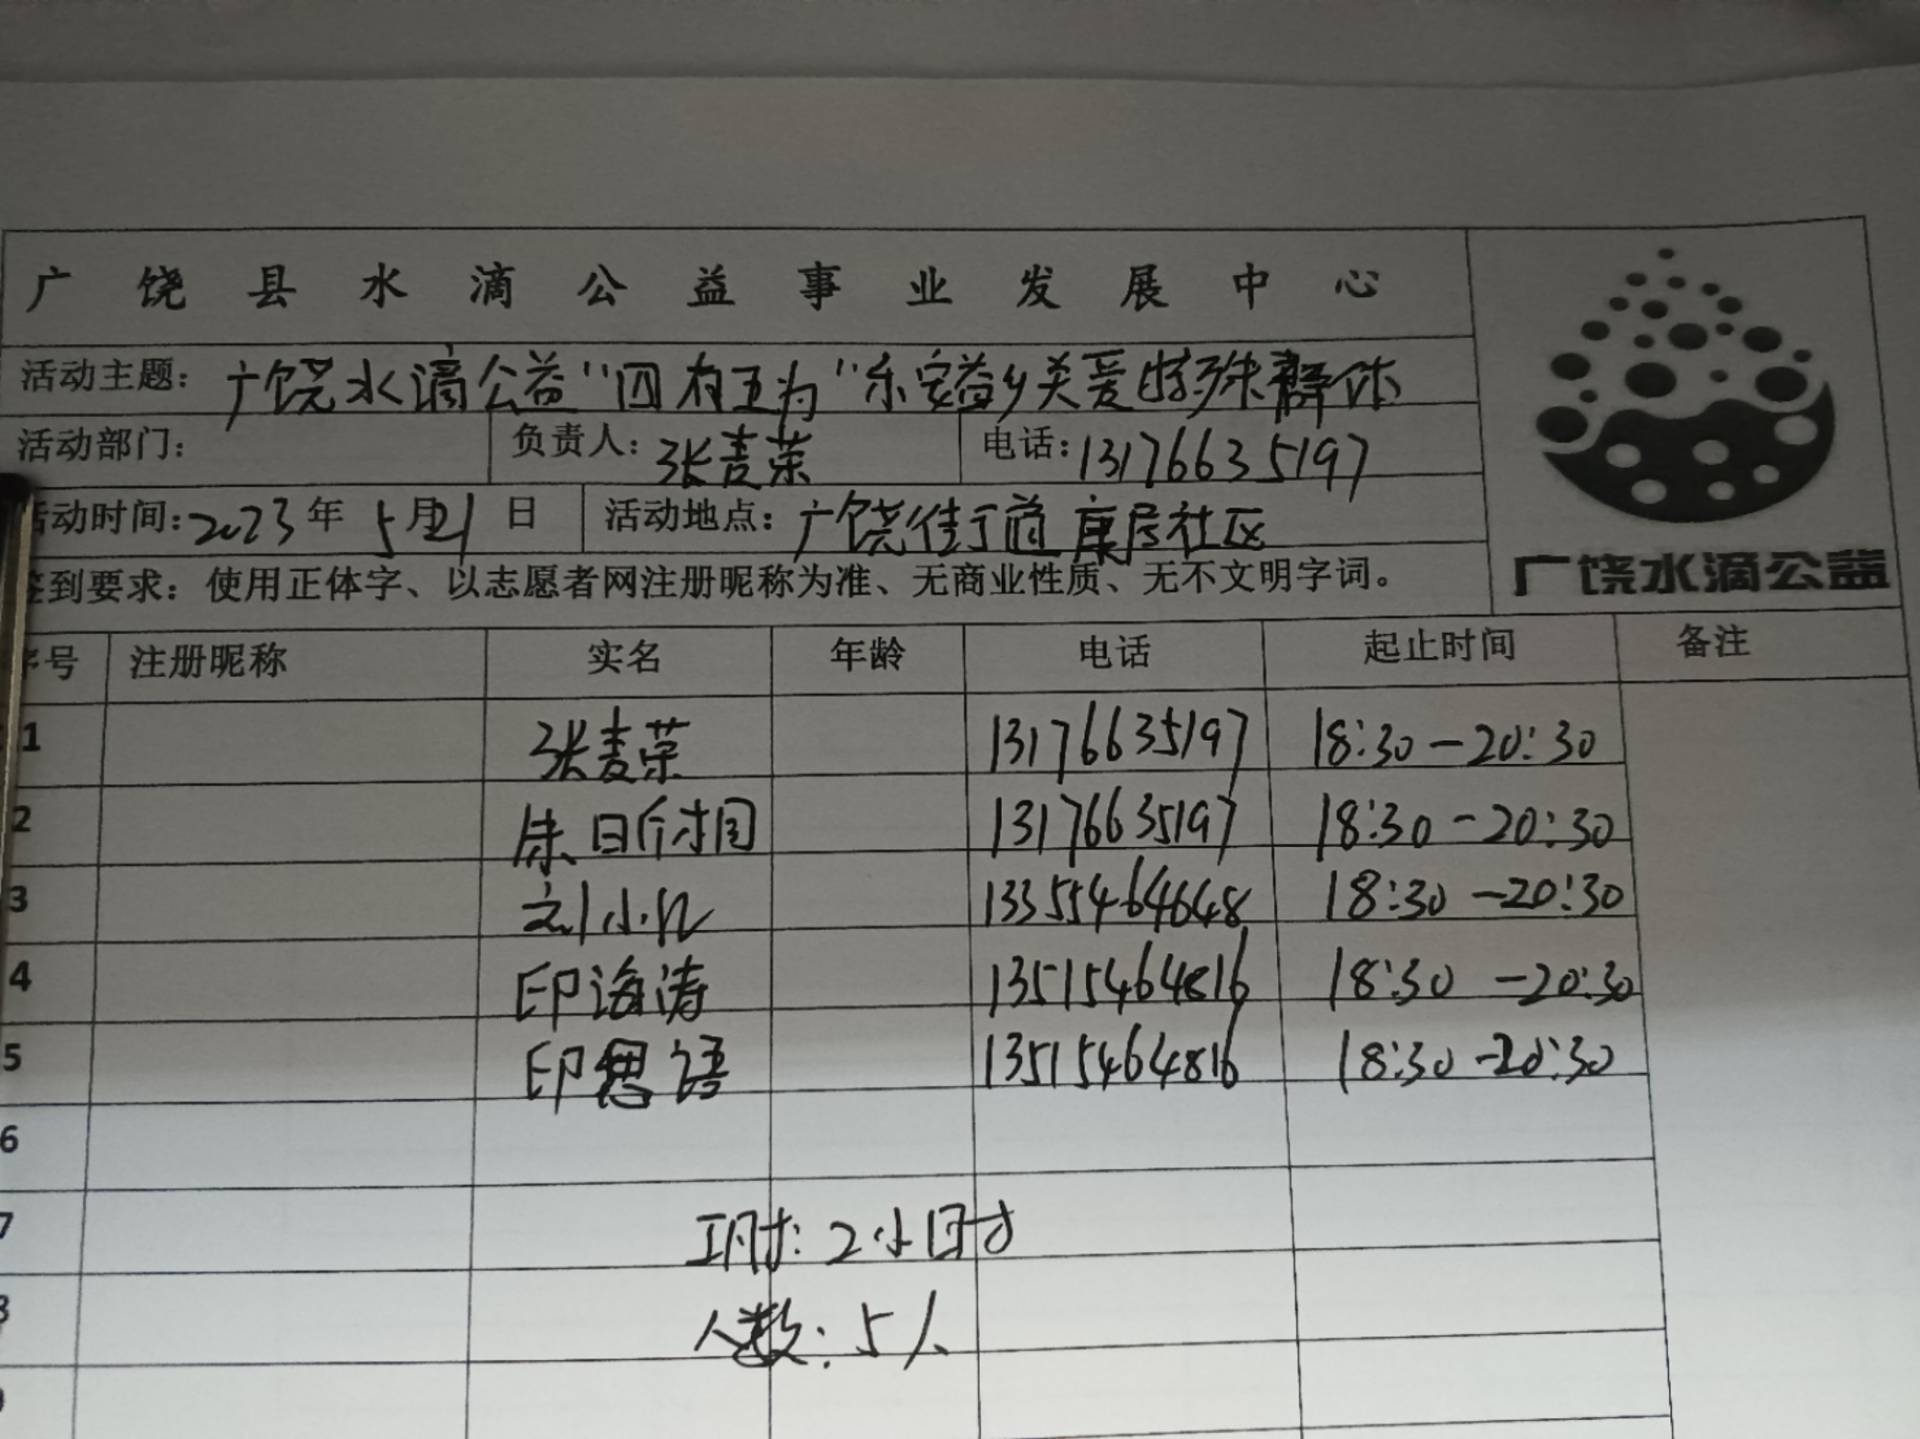 广饶县水滴公益事业发展中心
活动主题：广饶水滴公益"四有五为"乐安益乡关爱特殊群体
活动部门： 负责人：张麦荣 电话：13176635197
活动时间：2023年5月21日 活动地点：广饶街道康居社区
签到要求：使用正体字、以志愿者网注册昵称为准、无商业性质、无不文明字词。
广饶水滴公益
序号 注册昵称 实名 年龄 电话 起止时间 备注
1 张麦荣 13176635197 18:30-20:30
2 13176635197 18:30-20:30
3 刘小 13355464648 18:30-20:30
4 印海涛 13515464816 18:30-20:30
5 印思语 13515464816 18:30-20:30
6
7 工时：2小时
8 人数：5人